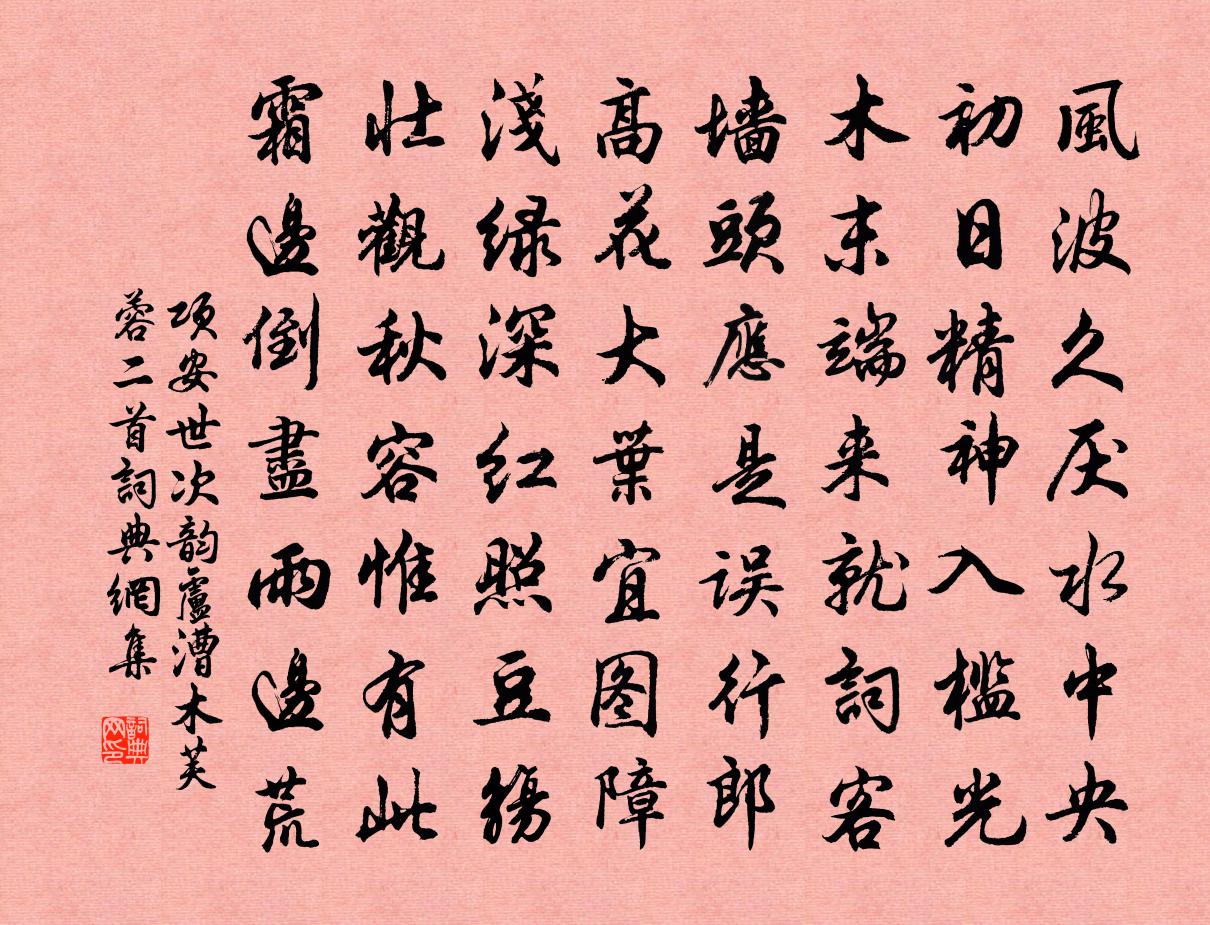 風波久厌水中央
初日精神入槛光
木末端来就詞客
墙頭應是误行郎
高花大葉宜图障
淺绿深红照豆觴
壮觀秋容惟有此
霜邊倒盡雨邊荒
项安世次韵盧漕木芙
蓉二首詞典網集
詞典网印